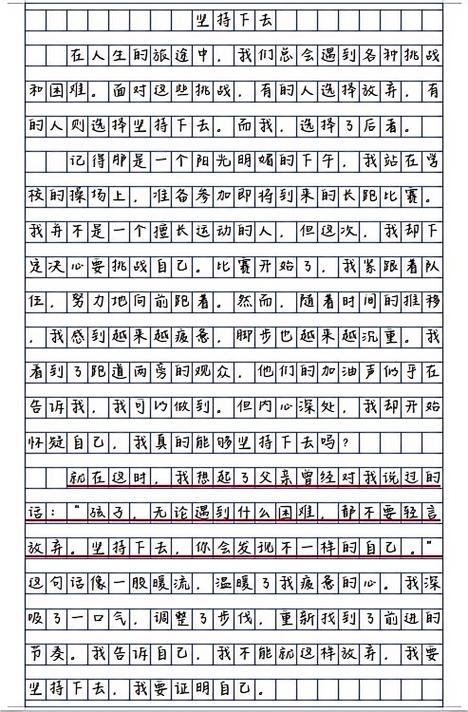 坚持下去
在人生的旅途中，我们总会遇到各种挑战
和困难。面对这些挑战，有的人选择放弃，有
的人则选择坚持下去。而我，选择了后者。
记得那是一个阳光明媚的下午，我站在学
校的操场上，准备参加即将到来的长跑比赛。
我并不是一个擅长运动的人，但这次，我却下
定决心要挑战自己。比赛开始了，我紧跟着队
伍，努力地向前跑着。然而，随着时间的推移
，我感到越来越疲惫，脚步也越来越沉重。我
看到了跑道两旁的观众，他们的加油声似乎在
告诉我，我可以做到。但内心深处，我却开始
怀疑自己，我真的能够坚持下去吗？
就在这时，我想起了父亲曾经对我说过的
话：“孩子，无论遇到什么困难，都不要轻言
放弃。坚持下去，你会发现不一样的自己。”
这句话像一股暖流，温暖了我疲惫的心。我深
吸了一口气，调整了步伐，重新找到了前进的
节奏。我告诉自己，我不能就这样放弃，我要
坚持下去，我要证明自己。